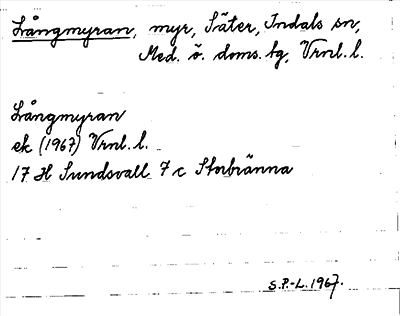 Långmyran, myr, Säter, Indals sn,
Med. ö. doms. bg, Vrnl. l.
Långmyran
ek (1967) Vrnl. l.
17 H Sundsvall 7 c Storbränna
S.P.-L. 1967.